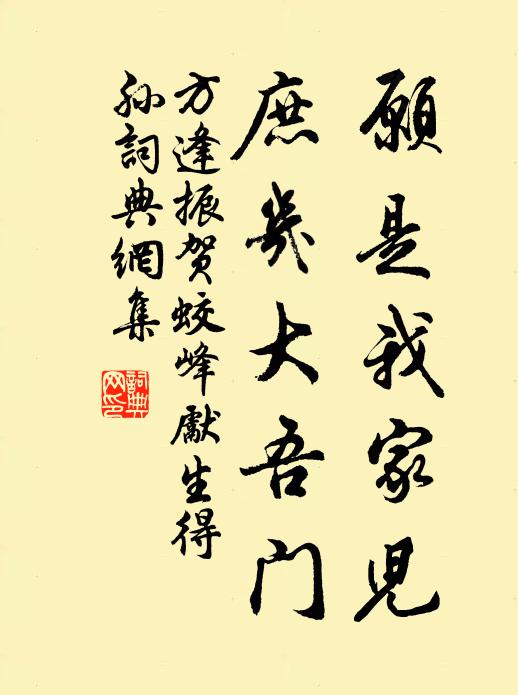 願是我家児
庶幾大吾門
方逢振賀蛟峰獻生得
孫詞典網集
詞典网印